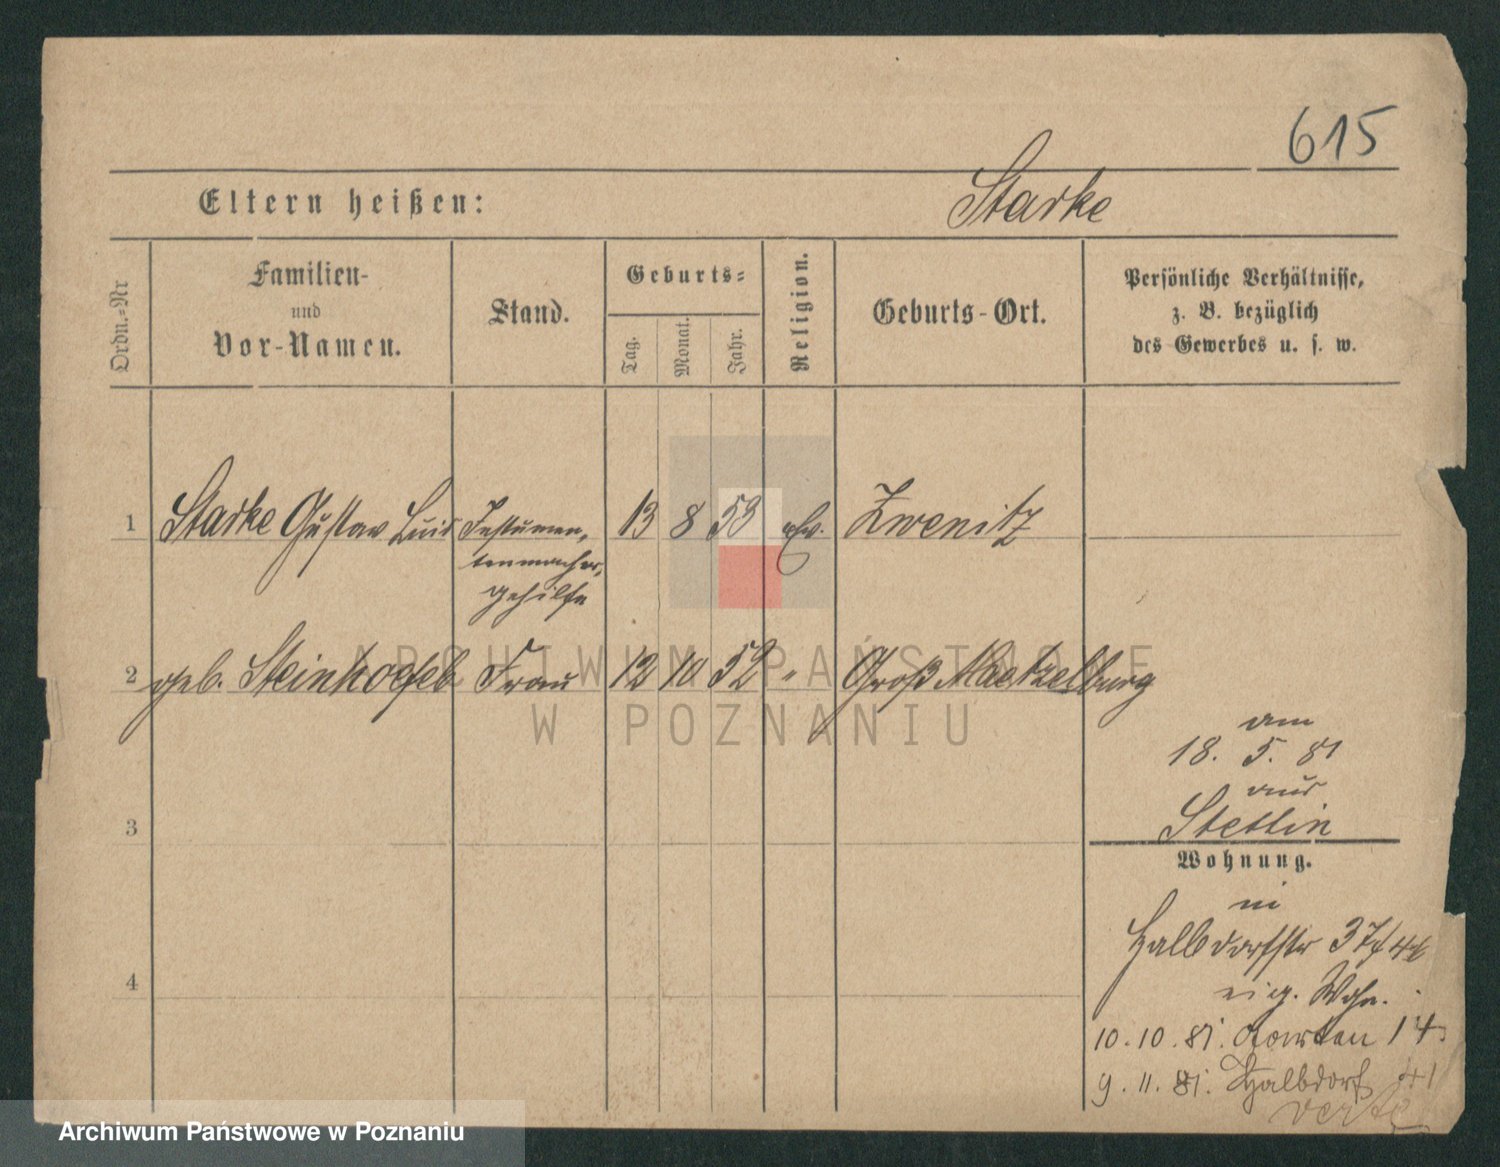 615
Eltern heißen:
Starke
Ordn.=Nr
Familien-
und
Vor-Namen.
Stand.
Geburts=
Tag.
Monat.
Jahr.
Religion.
Geburts-Ort.
Persönliche Verhältnisse,
z. B. bezüglich
des Gewerbes u. s. w.
1
Starke Gustav Luis
Instrumen-
tenmacher-
gehilfe
13 8 53 ev.
Zwenitz
2
geb. Steinhoefeb
Frau
12 10 52 "
Groß Maetzelburg
am
18. 5. 81
aus
Stettin
3
Wohnung.
in
Halbdorfstr 37
eig. Wohn.
4
10.10.81. Garten 14.
9.11.81. Halbdorf 41
verte
ARCHIWUM PAŃSTWOWE
W POZNANIU
Archiwum Państwowe w Poznaniu